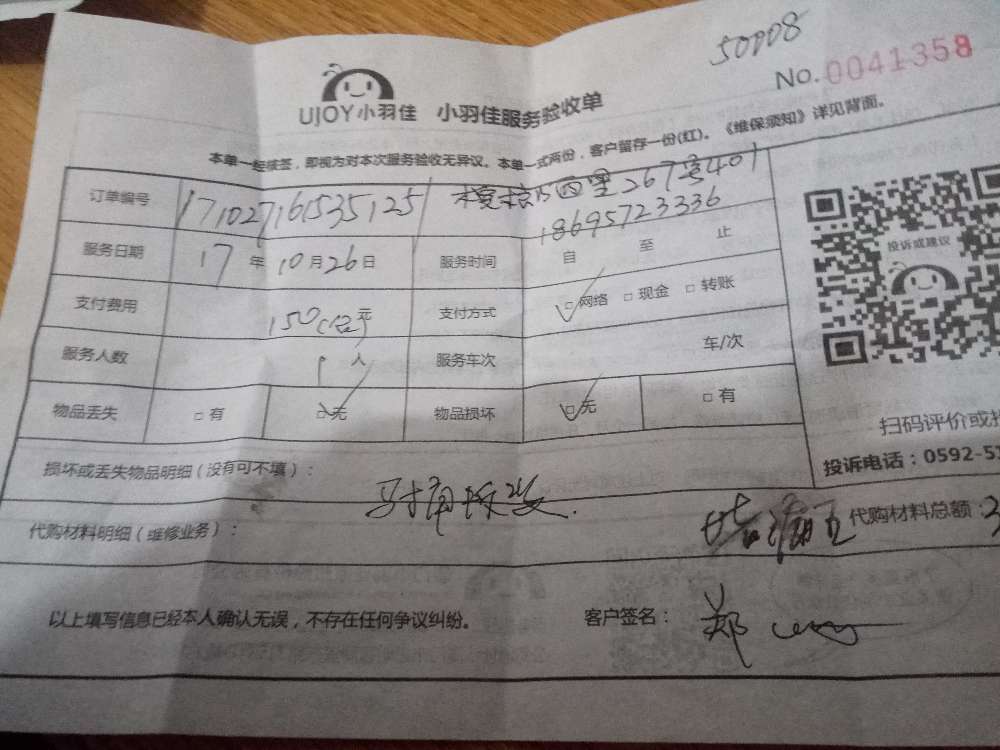 50008
No.0041358
UJOY小羽佳 小羽佳服务验收单
本单一经核签，即视为对本次服务验收无异议。本单一式两份，客户留存一份(红)。《维保须知》详见背面。
订单编号 171027161535125 四里267号401
18695723336
服务日期 17年10月26日 服务时间 自 至 止
支付费用 150 元 支付方式 □网络 □现金 □转账
服务人数 1人 服务车次 □ 车/次
物品丢失 □有 □无 物品损坏 □无 □有
投诉或建议
扫码评价或投
投诉电话：0592-51
损坏或丢失物品明细（没有可不填）：
代购材料明细（维修业务）： 代购材料总额：3
以上填写信息已经本人确认无误，不存在任何争议纠纷。 客户签名： 郑